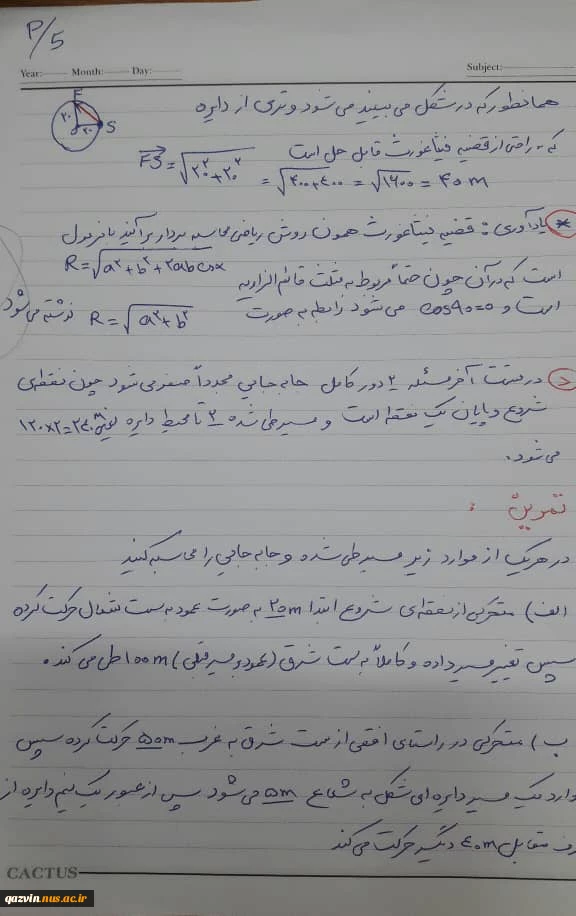 P/5
Year: Month: Day: Subject:
F
۲۰
۲۰ S
همانطور که در شکل می بینید می شود وتری از دایره
که به راحتی از قضیه فیثاغورث قابل حل است
FS = √۲۰²+۲۰² = √۴۰۰+۴۰۰ = √۱۶۰۰ = ۴۰ m
* یادآوری : قضیه فیثاغورث همون روش ریاضی محاسبه بردار برآیند با فرمول
R = √a²+b²+۲ab cosα
است که در آن چون حتماً مربوط به مثلث قائم الزاویه
است و cos۹۰=۰ می شود رابطه به صورت R = √a²+b² نوشته می شود
در قسمت آخر مسئله ۲ دور کامل جابه جایی مجدداً صفر می شود چون نقطه ای
شروع و پایان یک نقطه است و مسیر طی شده ۲ تا محیط دایره یعنی ۱۲۰×۲=۲۴۰m
می شود.
تمرین :
در هر یک از موارد زیر مسیر طی شده و جابه جایی را محاسبه کنید
الف) متحرکی از نقطه ای شروع ابتدا m به صورت عمود به سمت شمال حرکت کرده
سپس تغییر مسیر داده و کاملاً به سمت شرق (عمود بر مسیر قبلی) ۱۰۰m طی می کند.
ب) متحرکی در راستای افقی از سمت شرق به غرب ۵۰m حرکت کرده سپس
وارد یک مسیر دایره ای شکل به شعاع ۵m می شود پس از عبور یک نیم دایره از
مقابل ۴۰m دیگر حرکت می کند
CACTUS
qazvin.nus.ac.ir